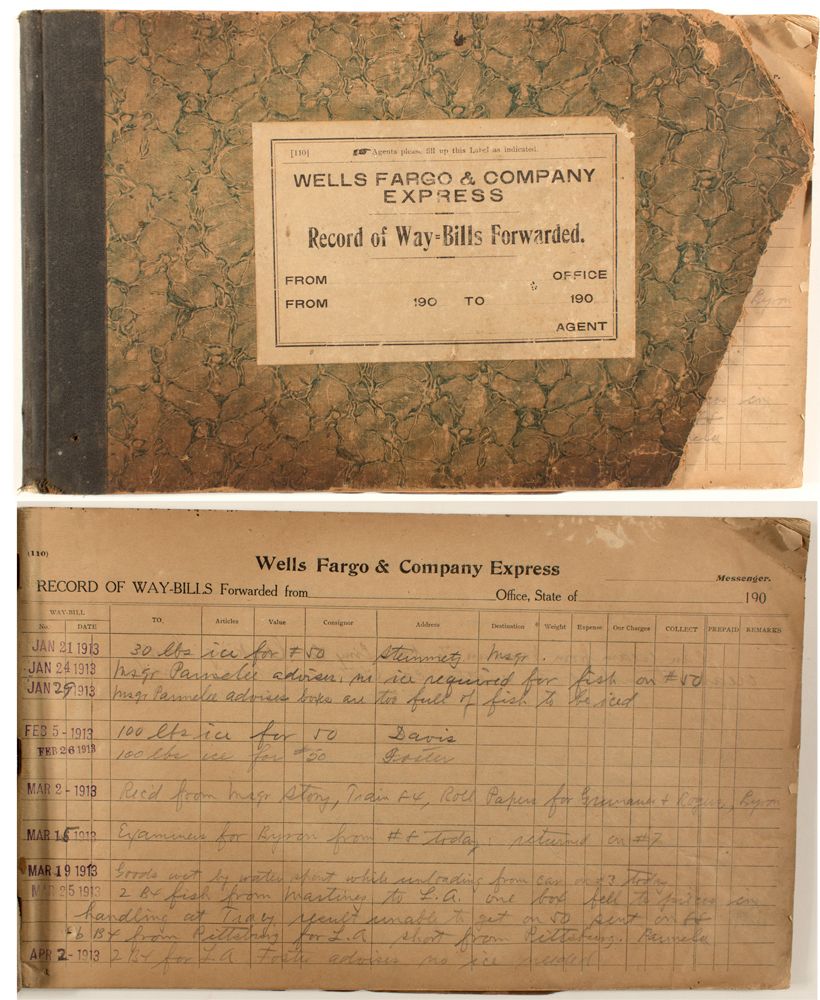 [110] Agents please fill up this Label as indicated.
WELLS FARGO & COMPANY
EXPRESS
Record of Way-Bills Forwarded.
FROM OFFICE
FROM 190 TO 190
AGENT
r.
Byron
in
(110)
Wells Fargo & Company Express
Messenger.
RECORD OF WAY-BILLS Forwarded from Office, State of 190
WAY-BILL
No. DATE TO, Articles Value Consignor Address Destination Weight Expense Our Charges COLLECT PREPAID REMARKS
JAN 21 1913 30 lbs ice for #50 Steinmetz Msgr.
JAN 24 1913 Msgr Parmelee advises, no ice required for fish on #50
JAN 29 1913 Msgr Parmelee advises boxes are too full of fish to be iced
FEB 5 - 1913 100 lbs ice for 50 Davis
FEB 26 1913 100 lbs ice for #50 Foster
MAR 2 - 1913 Rec'd from Msgr Story, Train 84, Roll Papers for & Byron
MAR 15 1913 Examiners for Byron from #8 today, returned on #7
MAR 19 1913 Goods wet by water spout while unloading from car on 93 today
MAR 25 1913 2 Bx fish from Martinez to L.A. one box fell to pieces in
handling at Tracy result unable to get on 50 sent on
6 Bx from Pittsburg for L.A. short from Pittsburg. Parmele
APR 2 - 1913 2 Bx for L.A. Foster advises no ice needed